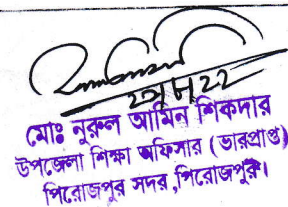 মোঃ নুরুল আমিন শিকদার
উপজেলা শিক্ষা অফিসার (ভারপ্রাপ্ত)
পিরোজপুর সদর, পিরোজপুর।